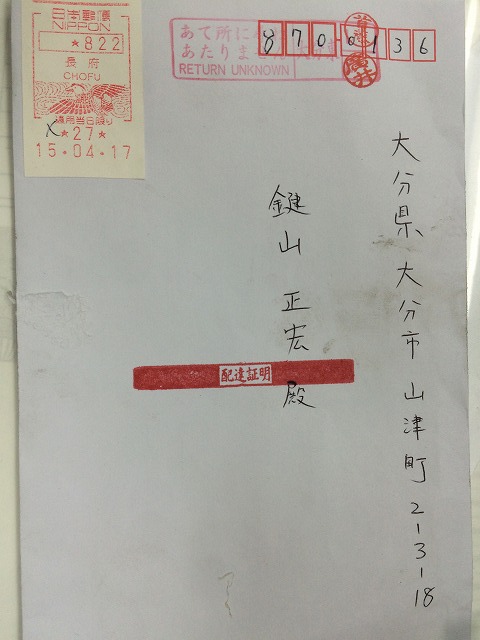 日本郵便
NIPPON
*822
長府
CHOFU
適用当日限り
*27*
15.04.17
あて所に
あたりま
RETURN UNKNOWN
8700136
大分県大分市山津町2-3-18
鍵山正宏殿
配達証明